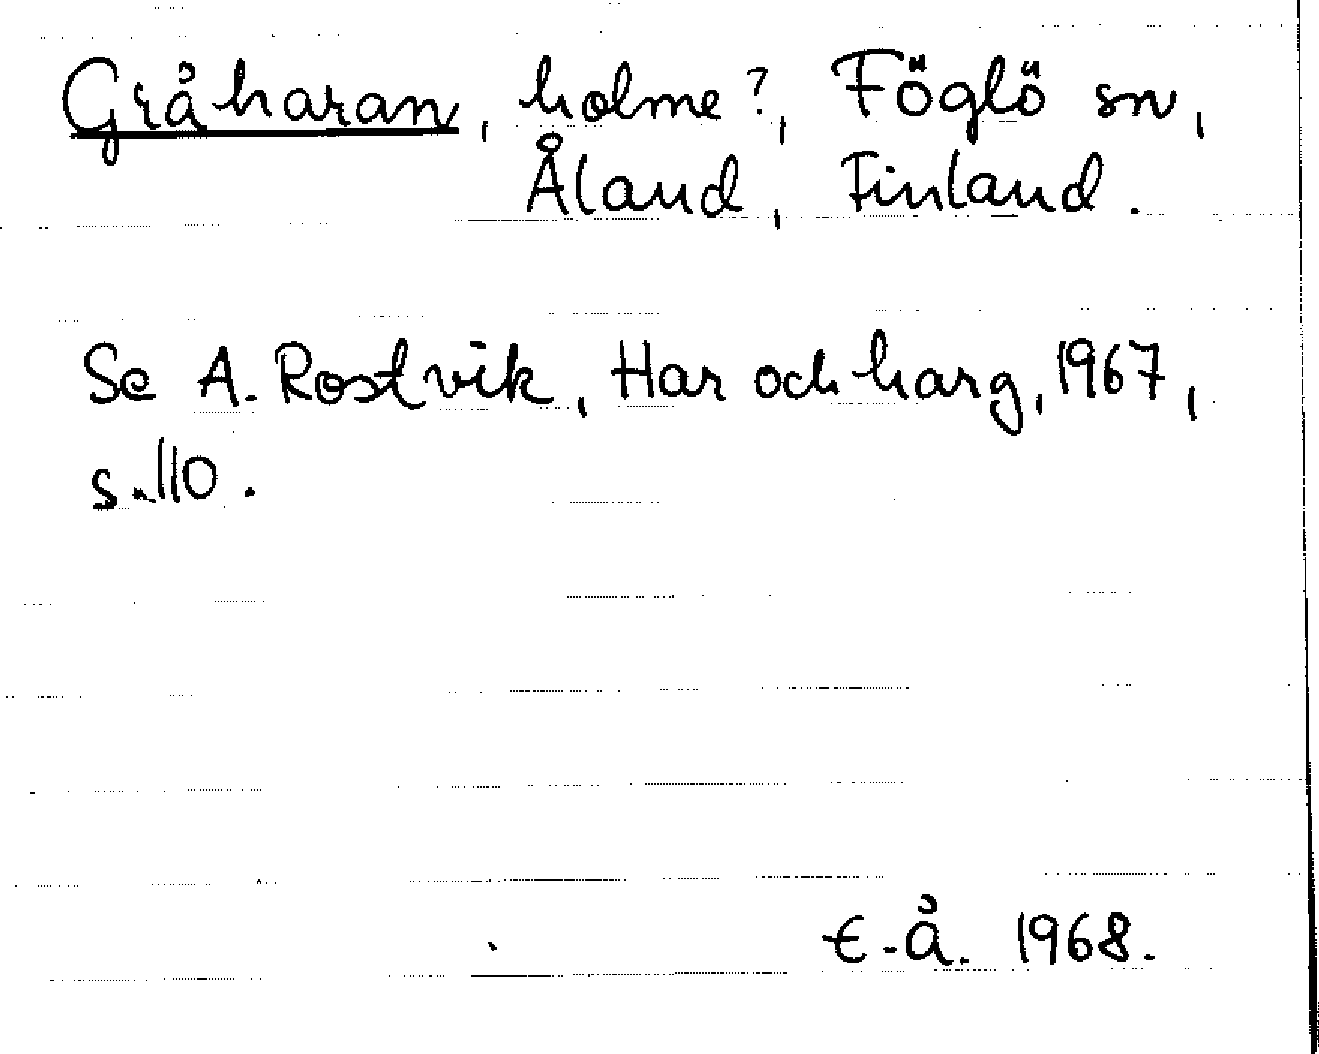 Gråharan, holme?, Föglö sn,
Åland, Finland.
Se A. Rostvik, Har och harg, 1967,
s. 110.
E. Å. 1968.